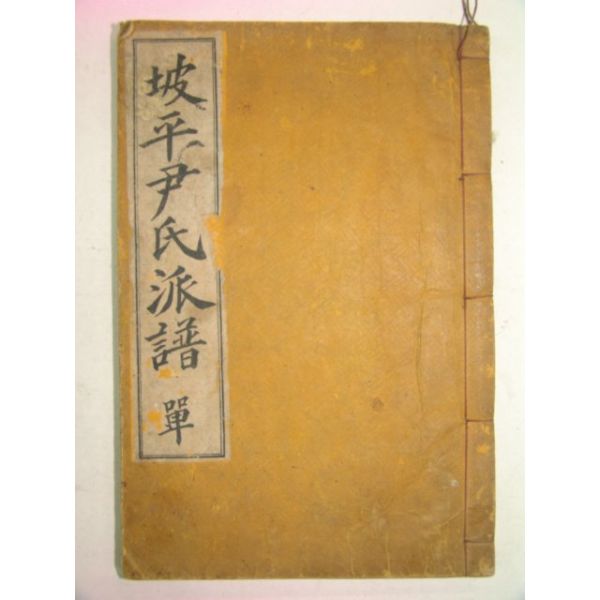 坡平尹氏派譜 單